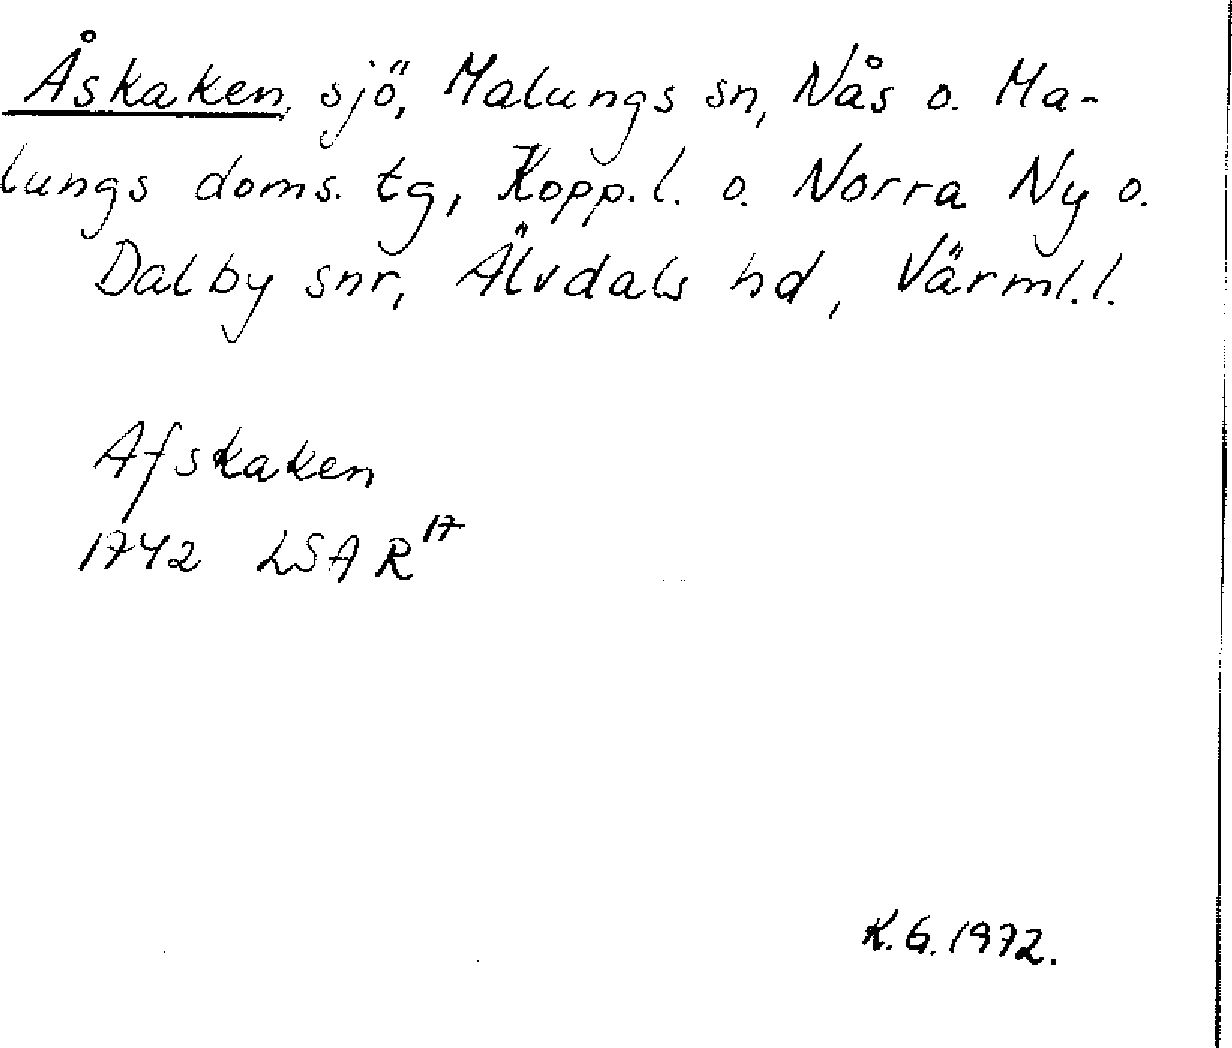 Åskaken, sjö, Malungs sn, Nås o. Ma-
lungs doms. tg, Kopp.l. o. Norra Ny o.
Dalby snr, Älvdals hd, Värml.l.
Afskaken
1742 LSA R17
K.G.1972.